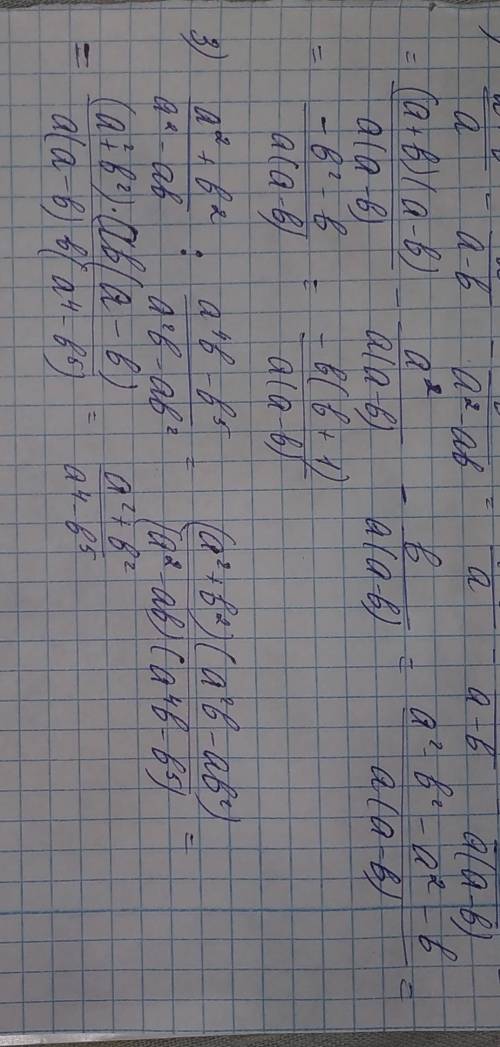 = \frac{(a+b)(a-b)}{a(a-b)} - \frac{a^2}{a(a-b)} - \frac{b}{a(a-b)} = \frac{a^2-b^2-a^2-b}{a(a-b)} =
= \frac{-b^2-b}{a(a-b)} = \frac{-b(b+1)}{a(a-b)}
3) \frac{a^2+b^2}{a^2-ab} : \frac{a^4b-b^5}{a^2b-ab^2} = \frac{(a^2+b^2)(a^2b-ab^2)}{(a^2-ab)(a^4b-b^5)} =
= \frac{(a^2+b^2)·ab(a-b)}{a(a-b)b(a^4-b^5)} = \frac{a^2+b^2}{a^4-b^5}